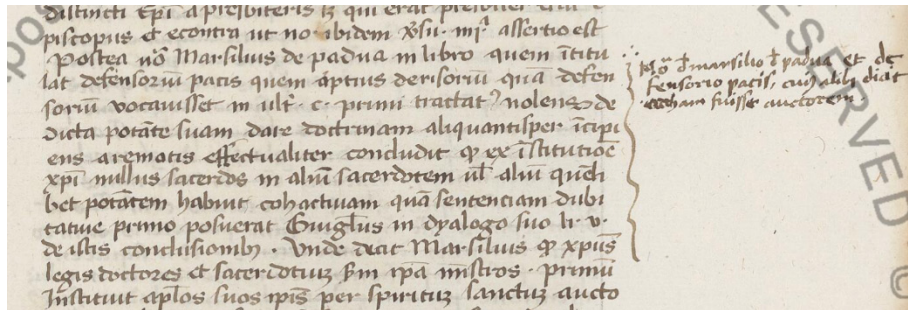 distincti Ep̄i a presbiteris
piscopus et econtra ut no. ibidem
Postea v̄o Marsilius de padua in libro quem ītitu
lat defensoriū pacis quem aptius derisoriū quā defen
soriū vocauisset in ult̄. c. primi tractatꝰ nolens de
dicta potāte suam dare doctrinam aliquantisper īcipi
ens a remotis effectualiter concludit ꝙ ex īstitutiōe
xp̄i nullus sacerdos in aliū sacerdotem ul̄ aliū quēli
bet potātem habuit cohactiuam quā sentenciam dubi
tatiue primo posuerat Guigl̄us in dyalogo suo li. v.
de istis conclusionibꝫ. Unde dicit Marsilius ꝙ xp̄us
legis doctores et sacerdotuꝫ s̄m ip̄a mīstros. primū
Instituit apl̄os suos ip̄is per spirituꝫ sanctuꝫ aucto
marsilio padua et de
fensorio pacis, alibi
fuisse auctorem
RESERVED ©